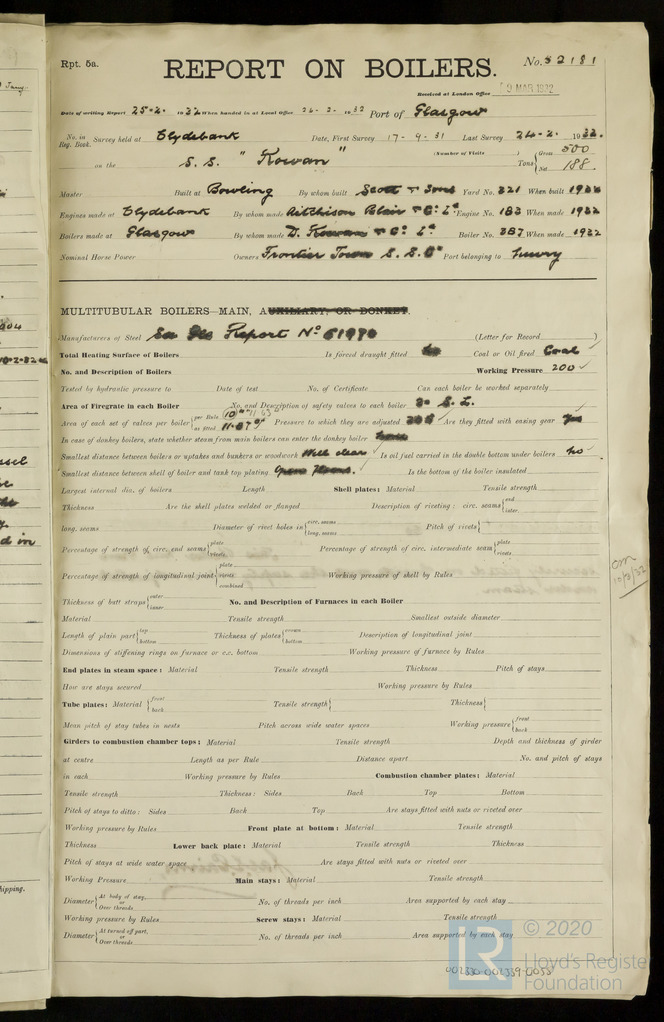 Rpt. 5a.
REPORT ON BOILERS.
No. 52181
Received at London Office
9 MAR 1932
Date of writing Report 25-2- 1932 When handed in at Local Office 26-2-1932 Port of Glasgow
No. in Reg. Book. Survey held at Clydebank Date, First Survey 17-9-31 Last Survey 24-2- 1932.
on the S.S. "Rowan" (Number of Visits ) Tons { Gross 500 Net 188
Master Built at Bowling By whom built Scott & Sons Yard No. 321 When built 1932
Engines made at Clydebank By whom made Aitchison Blair & Co Ld Engine No. 183 When made 1932
Boilers made at Glasgow By whom made D. Rowan & Co Ld. Boiler No. 387 When made 1932
Nominal Horse Power Owners Frontier Town S.S. Co Port belonging to Newry
MULTITUBULAR BOILERS MAIN, AUXILIARY, OR DONKEY.
Manufacturers of Steel See Report No 51990 (Letter for Record )
Total Heating Surface of Boilers Is forced draught fitted Coal or Oil fired Coal
No. and Description of Boilers Working Pressure 200
Tested by hydraulic pressure to Date of test No. of Certificate Can each boiler be worked separately
Area of Firegrate in each Boiler No. and Description of safety valves to each boiler S.L.
Area of each set of valves per boiler { per Rule as fitted 11.87 Pressure to which they are adjusted 205 Are they fitted with easing gear Yes
In case of donkey boilers, state whether steam from main boilers can enter the donkey boiler
Smallest distance between boilers or uptakes and bunkers or woodwork Well clear Is oil fuel carried in the double bottom under boilers No
Smallest distance between shell of boiler and tank top plating Open Floors. Is the bottom of the boiler insulated
Largest internal dia. of boilers Length Shell plates: Material Tensile strength
Thickness Are the shell plates welded or flanged Description of riveting: circ. seams { end inter.
long. seams Diameter of rivet holes in { circ. seams long. seams Pitch of rivets {
Percentage of strength of circ. end seams { plate rivets Percentage of strength of circ. intermediate seam { plate rivets
Percentage of strength of longitudinal joint { plate rivets combined Working pressure of shell by Rules
Thickness of butt straps { outer inner No. and Description of Furnaces in each Boiler
Material Tensile strength Smallest outside diameter
Length of plain part { top bottom Thickness of plates { crown bottom Description of longitudinal joint
Dimensions of stiffening rings on furnace or c.c. bottom Working pressure of furnace by Rules
End plates in steam space: Material Tensile strength Thickness Pitch of stays
How are stays secured Working pressure by Rules
Tube plates: Material { front back Tensile strength { Thickness {
Mean pitch of stay tubes in nests Pitch across wide water spaces Working pressure { front back
Girders to combustion chamber tops: Material Tensile strength Depth and thickness of girder
at centre Length as per Rule Distance apart No. and pitch of stays
in each Working pressure by Rules Combustion chamber plates: Material
Tensile strength Thickness: Sides Back Top Bottom
Pitch of stays to ditto: Sides Back Top Are stays fitted with nuts or riveted over
Working pressure by Rules Front plate at bottom: Material Tensile strength
Thickness Lower back plate: Material Tensile strength Thickness
Pitch of stays at wide water space Are stays fitted with nuts or riveted over
Working Pressure Main stays: Material Tensile strength
Diameter { At body of stay, or Over threads No. of threads per inch Area supported by each stay
Working pressure by Rules Screw stays: Material Tensile strength
Diameter { At turned off part, or Over threads No. of threads per inch Area supported by each stay
002330-002339-0053
LR
© 2020
Lloyd's Register
Foundation